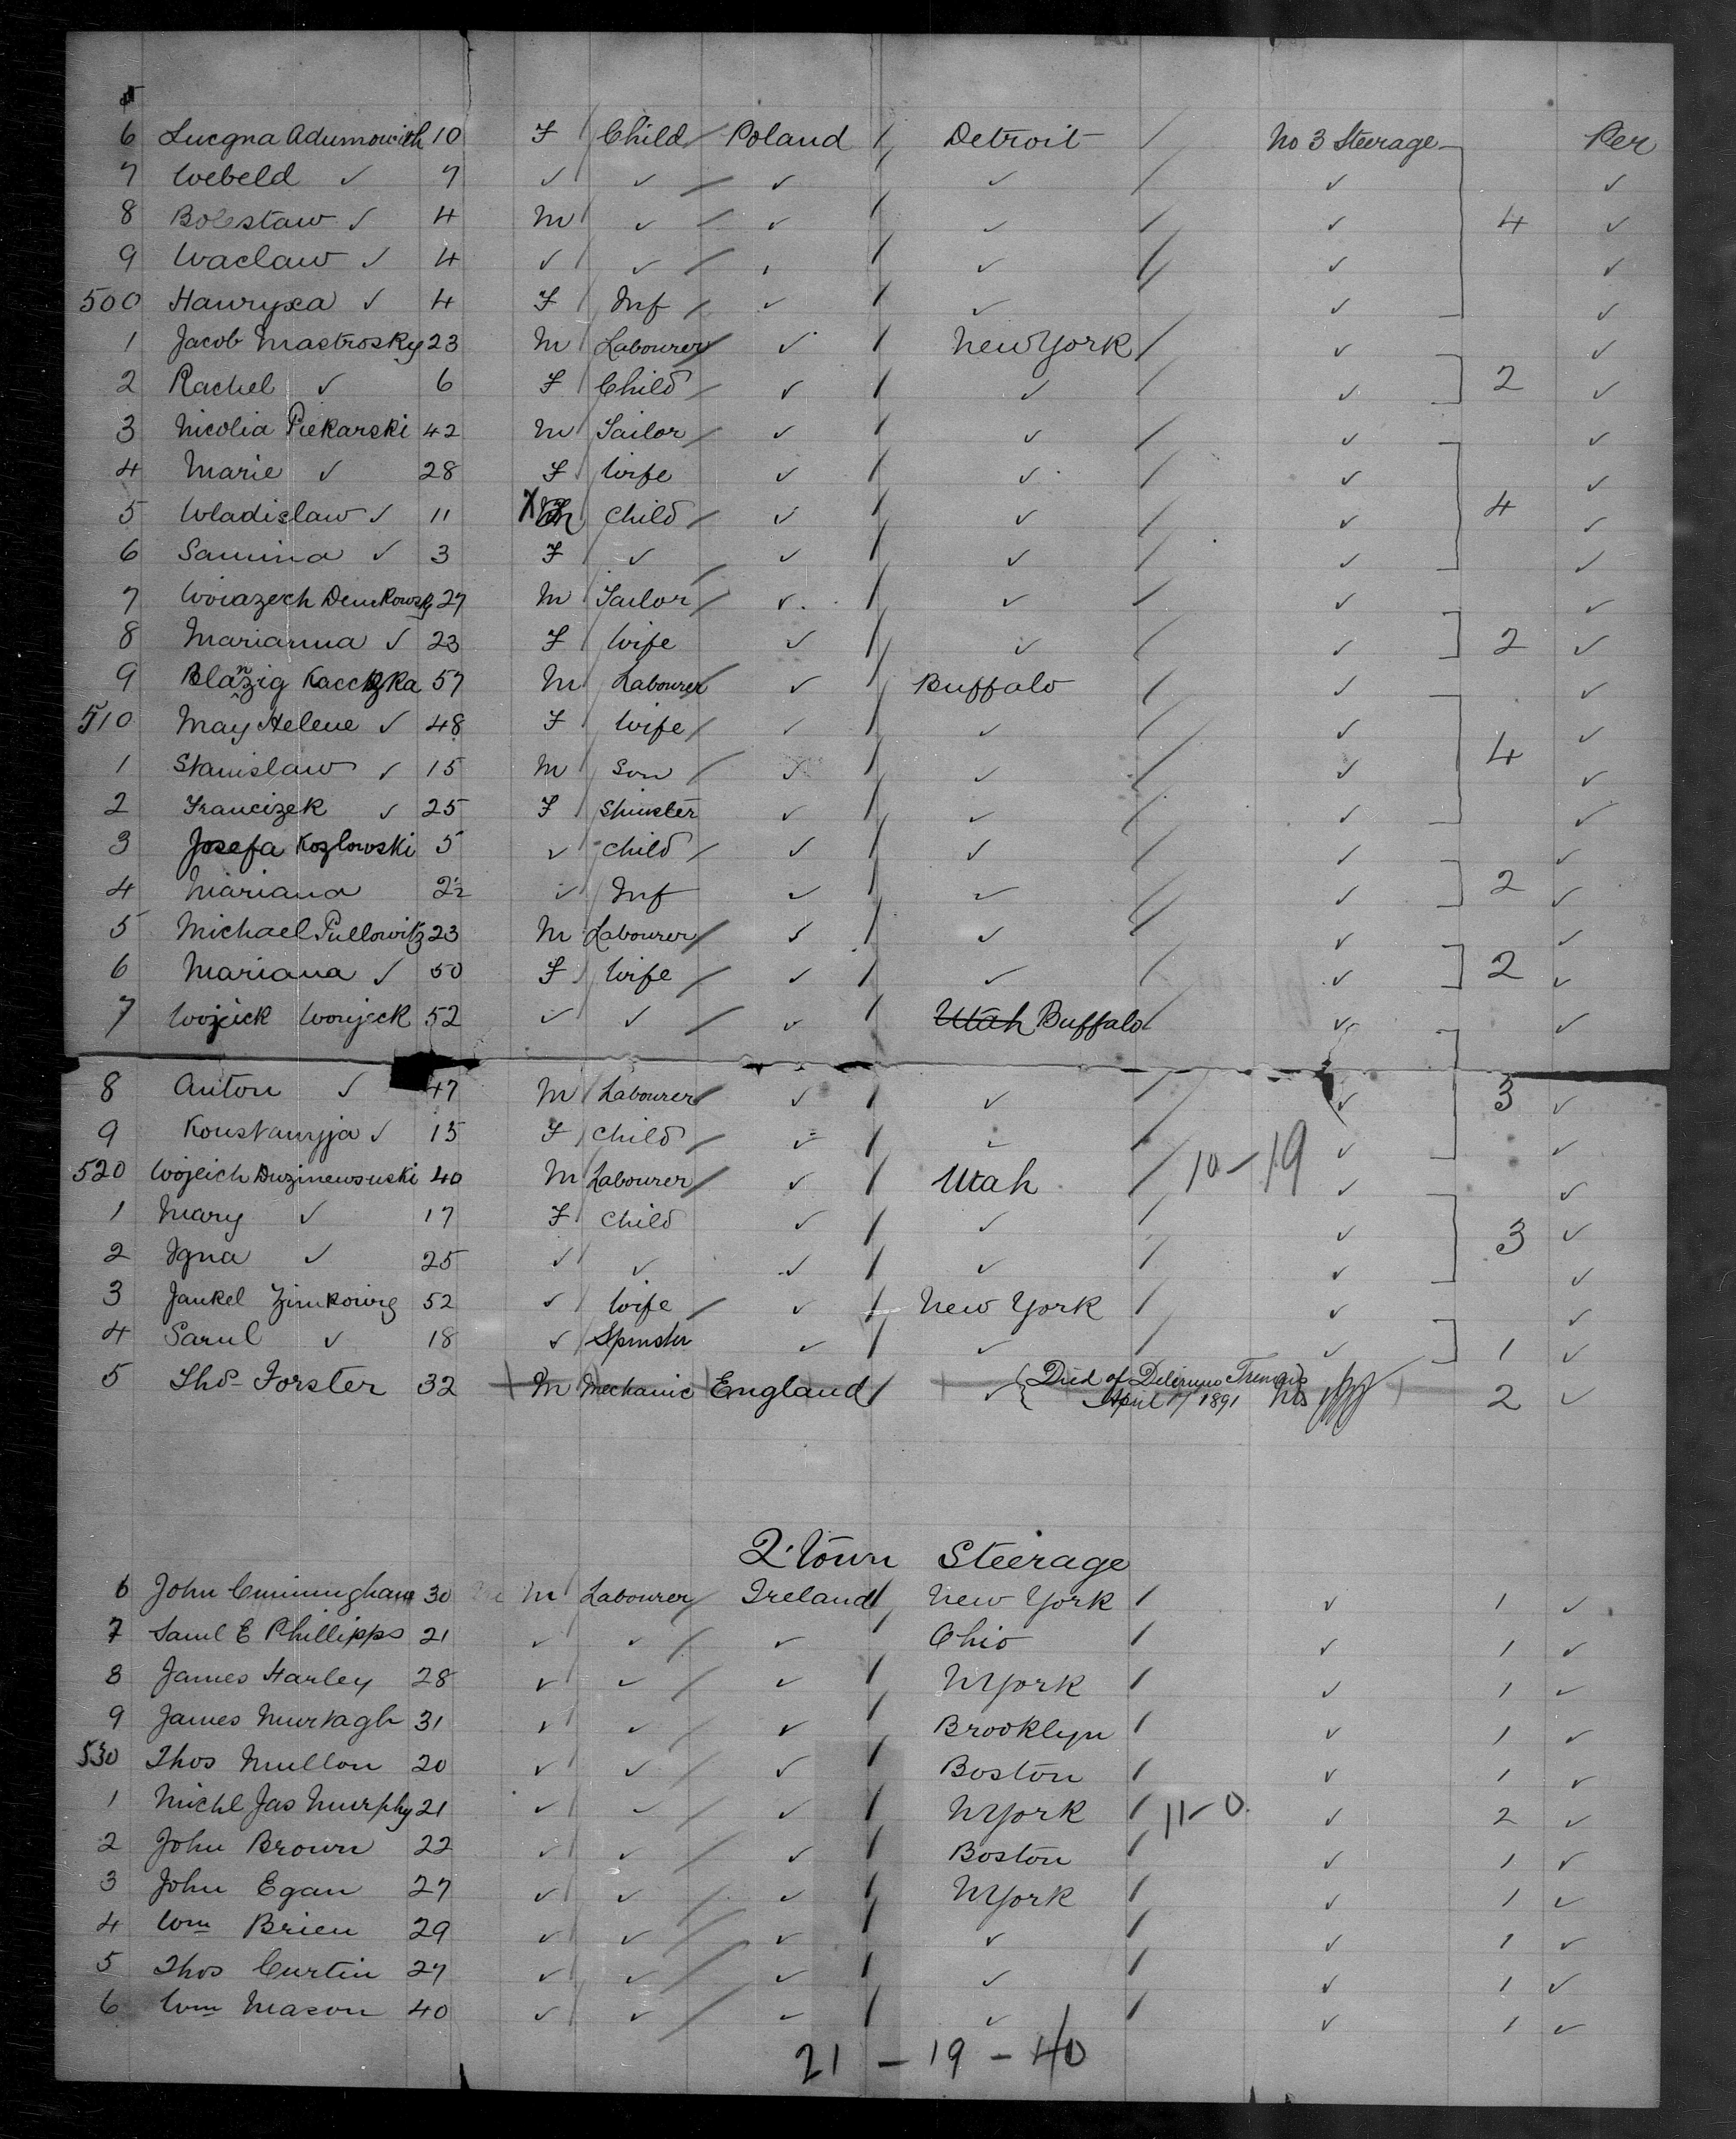 6 Lucgna Adumowich 10 F Child Poland Detroit No 3 Steerage Per
7 Webeld ✓ 7 ✓ ✓ ✓ ✓ ✓ ✓
8 Bolestaw ✓ 4 M ✓ ✓ ✓ ✓ 4 ✓
9 Waclaw ✓ 4 ✓ ✓ ✓ ✓ ✓ ✓
500 Hauryxa ✓ 4 F Inf ✓ ✓ ✓ ✓
1 Jacob Mastrosky 23 M Labourer ✓ New York ✓ ✓
2 Rachel ✓ 6 F Child ✓ ✓ ✓ 2 ✓
3 Nicolia Piekarski 42 M Tailor ✓ ✓ ✓ ✓
4 Marie ✓ 28 F Wife ✓ ✓ ✓ ✓
5 Wladislaw ✓ 11 M Child ✓ ✓ ✓ 4 ✓
6 Samina ✓ 3 F ✓ ✓ ✓ ✓ ✓
7 Woiazech Demkowsky 27 M Tailor ✓ ✓ ✓ ✓
8 Marianna ✓ 23 F Wife ✓ ✓ ✓ 2 ✓
9 Blanzig Kacczka 57 M Labourer ✓ Buffalo ✓ ✓
510 May Helene ✓ 48 F Wife ✓ ✓ ✓ ✓
1 Stanislaw ✓ 15 M Son ✓ ✓ ✓ 4 ✓
2 Francizek ✓ 25 F Spinster ✓ ✓ ✓ ✓
3 Josefa Kozlowski 5 ✓ Child ✓ ✓ ✓ ✓
4 Mariana 2½ ✓ Inf ✓ ✓ ✓ 2 ✓
5 Michael Pullowitz 23 M Labourer ✓ ✓ ✓ ✓
6 Mariana ✓ 50 F Wife ✓ ✓ ✓ 2 ✓
7 Wojeick Woujeck 52 ✓ ✓ ✓ Utah Buffalo ✓ ✓
8 Anton ✓ 47 M Labourer ✓ ✓ ✓ 3 ✓
9 Konstanyja ✓ 15 F Child ✓ ✓ ✓ ✓
520 Wojeich Duzinewsuski 40 M Labourer ✓ Utah 10-19 ✓ ✓
1 Mary ✓ 17 F Child ✓ ✓ ✓ 3 ✓
2 Igna ✓ 25 ✓ ✓ ✓ ✓ ✓ ✓
3 Jankel Zimkowig 52 ✓ Wife ✓ New York ✓ ✓
4 Sarul ✓ 18 ✓ Spinster ✓ ✓ ✓ 1 ✓
5 Thos Forster 32 M Mechanic England ✓ Died of Delirium Tremens
April 17 1891 2 ✓
Q'Town Steerage
6 John Cunningham 30 M Labourer Ireland New York ✓ 1 ✓
7 Saml E Phillipps 21 ✓ ✓ ✓ Ohio ✓ 1 ✓
8 James Harley 28 ✓ ✓ ✓ N York ✓ 1 ✓
9 James Murtagh 31 ✓ ✓ ✓ Brooklyn ✓ 1 ✓
530 Thos Mullon 20 ✓ ✓ ✓ Boston ✓ 1 ✓
1 Michl Jas Murphy 21 ✓ ✓ ✓ N York 11-0 ✓ 2 ✓
2 John Brown 22 ✓ ✓ ✓ Boston ✓ 1 ✓
3 John Egan 27 ✓ ✓ ✓ N York ✓ 1 ✓
4 Wm Brien 29 ✓ ✓ ✓ ✓ ✓ 1 ✓
5 Thos Curtin 27 ✓ ✓ ✓ ✓ ✓ 1 ✓
6 Wm Mason 40 ✓ ✓ ✓ ✓ ✓ 1 ✓
21 - 19 - 40